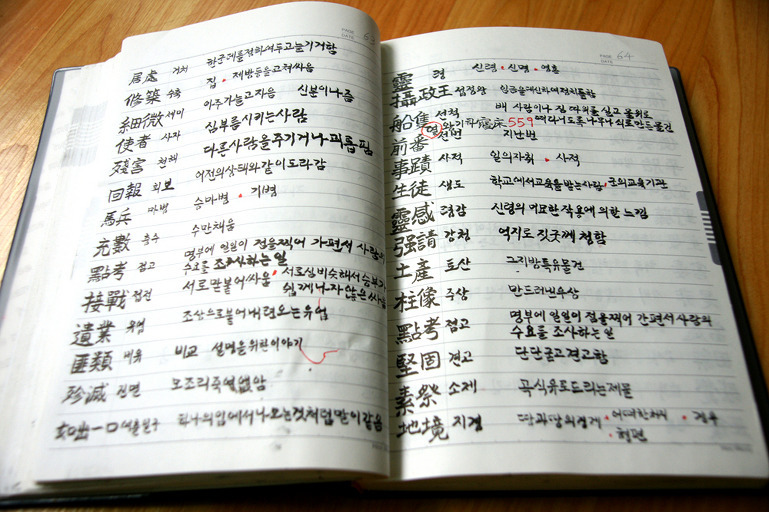 PAGE
DATE 63
居處 거처 한군데를 정하여두고늘기거함
修築 수축 집 · 제방등을고쳐싸음
細微 세미 아주가늘고자음 신분이낮음
使者 사자 심부름시키는사람
殘害 잔해 다른사람을주기거나괴롭핌
回報 회보 여전의상태와같이도라감
馬兵 마병 승마병 · 기병
充數 충수 수만채움
點考 점고 명부에 일일이 점을찍어 가편서 사람의
수요를 조사하는일
接戰 접전 서로맏붙어싸움 · 서로실비슷해서승부가
쉽게나지않은싸움
遺業 유업 조상으로붙어내려오는유업
匪類 비유 비교 설명을위한이야기
殄滅 진멸 모조리죽여없암
如出一口 여출일구 하나의입에서나오는것처럼말이같음
PAGE
DATE 64
靈 령 신령 · 신명 · 영혼
攝政王 섭정왕 임금을대신하여정치를함
船隻 선척 배 사람이나 짐 따위를 싣고 물위로
떠다니도록 나무나 쇠로만든물건
559
前番 전번 지난번
事蹟 사적 일의자취 · 사적
生徒 생도 학교에서교육을받는사람, 군의교육기관
靈感 령감 신령의 미묘한 작용에 의한 느낌
强請 강청 억지로 짓굿께 청함
土産 토산 그지방특유물건
柱像 주상 만드러낸우상
點考 점고 명부에 일일이 점을찍어 간편서 사랑의
수요를 조사하는일
堅固 견고 단단굳고견고함
素祭 소제 곡식유로드리는제물
地境 지경 땅과땅의경게 · 어떠한처지 · 경우
· 형편